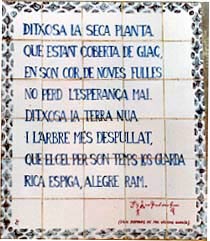 DITXOSA LA SECA PLANTA
QUE ESTANT COBERTA DE GLAÇ,
EN SON COR, DE NOVES FULLES
NO PERD L'ESPERANÇA MAI.
DITXOSA LA TERRA NUA
I L'ARBRE MÉS DESPULLAT,
QUE EL CEL PER SON TEMPS LOS GUARDA
RICA ESPIGA, ALEGRE RAM.